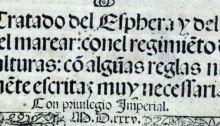 Tratado del Esphera y del
el marear: con el regimiẽto d
alturas: cõ algũas reglas n
mẽte escritas muy necessari
Con priuilegio Imperial.
M.D.xxxv.